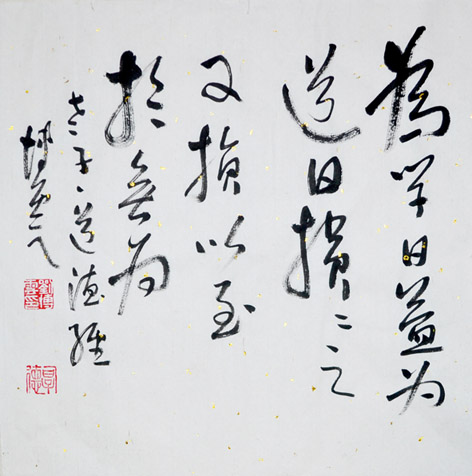 為学日益为
道日損〻之
又損以至
於無为
老子道德經